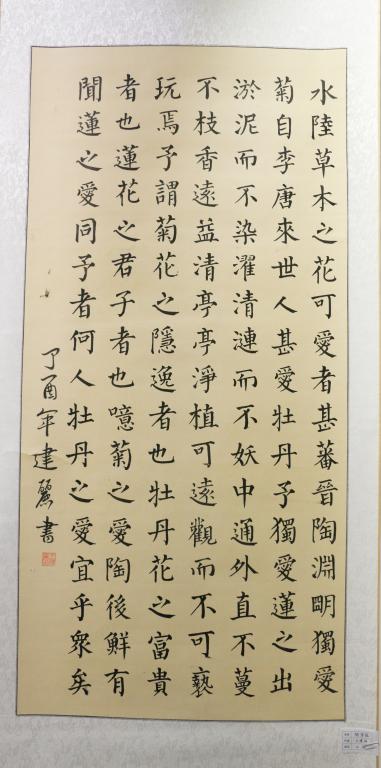 水陸草木之花可愛者甚蕃晉陶淵眀獨愛
菊自李唐來世人甚愛牡丹予獨愛蓮之出
淤泥而不染濯清漣而不妖中通外直不蔓
不枝香遠益清亭亭淨植可遠觀而不可褻
玩焉予謂菊花之隱逸者也牡丹花之富貴
者也蓮花之君子者也噫菊之愛陶後鮮有
聞蓮之愛同予者何人牡丹之愛宜乎眾矣
丁酉年建麗書